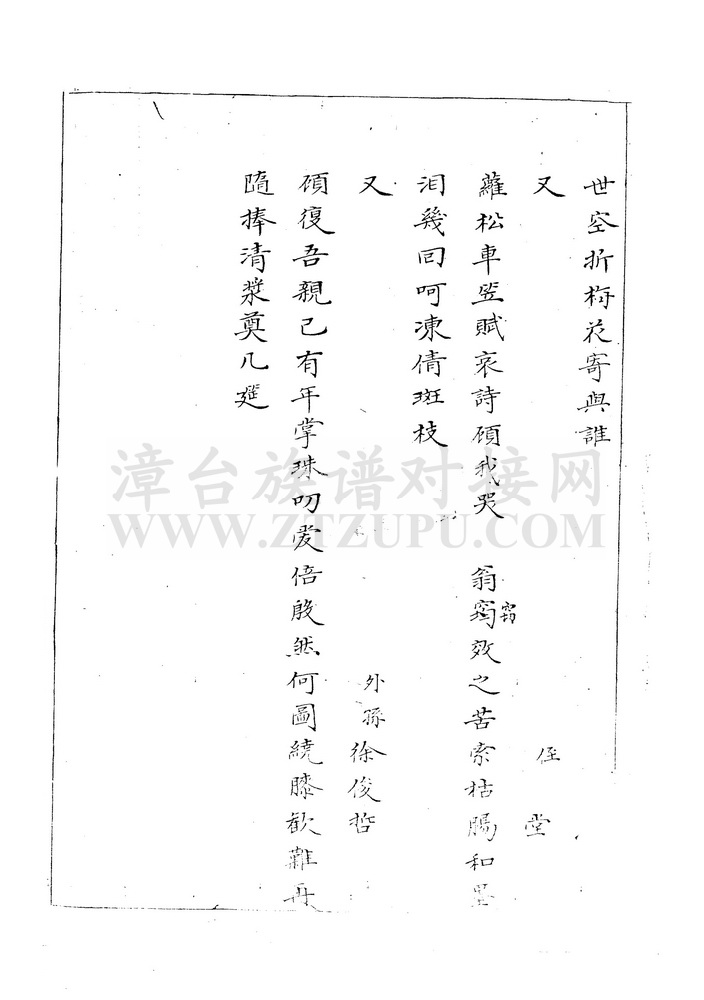 世空折梅花寄與誰
又 侄 堂
蘿松車笠賦哀詩碩我哭 翁窃效之苦索枯腸和墨
窃
泪幾回呵凍倩斑枝
又 外孫徐俊哲
碩復吾親已有年掌珠叨爱倍殷然何圖繞膝歡難再
隨捧清漿奠几筵
漳台族谱对接网
WWW.ZTZUPU.COM